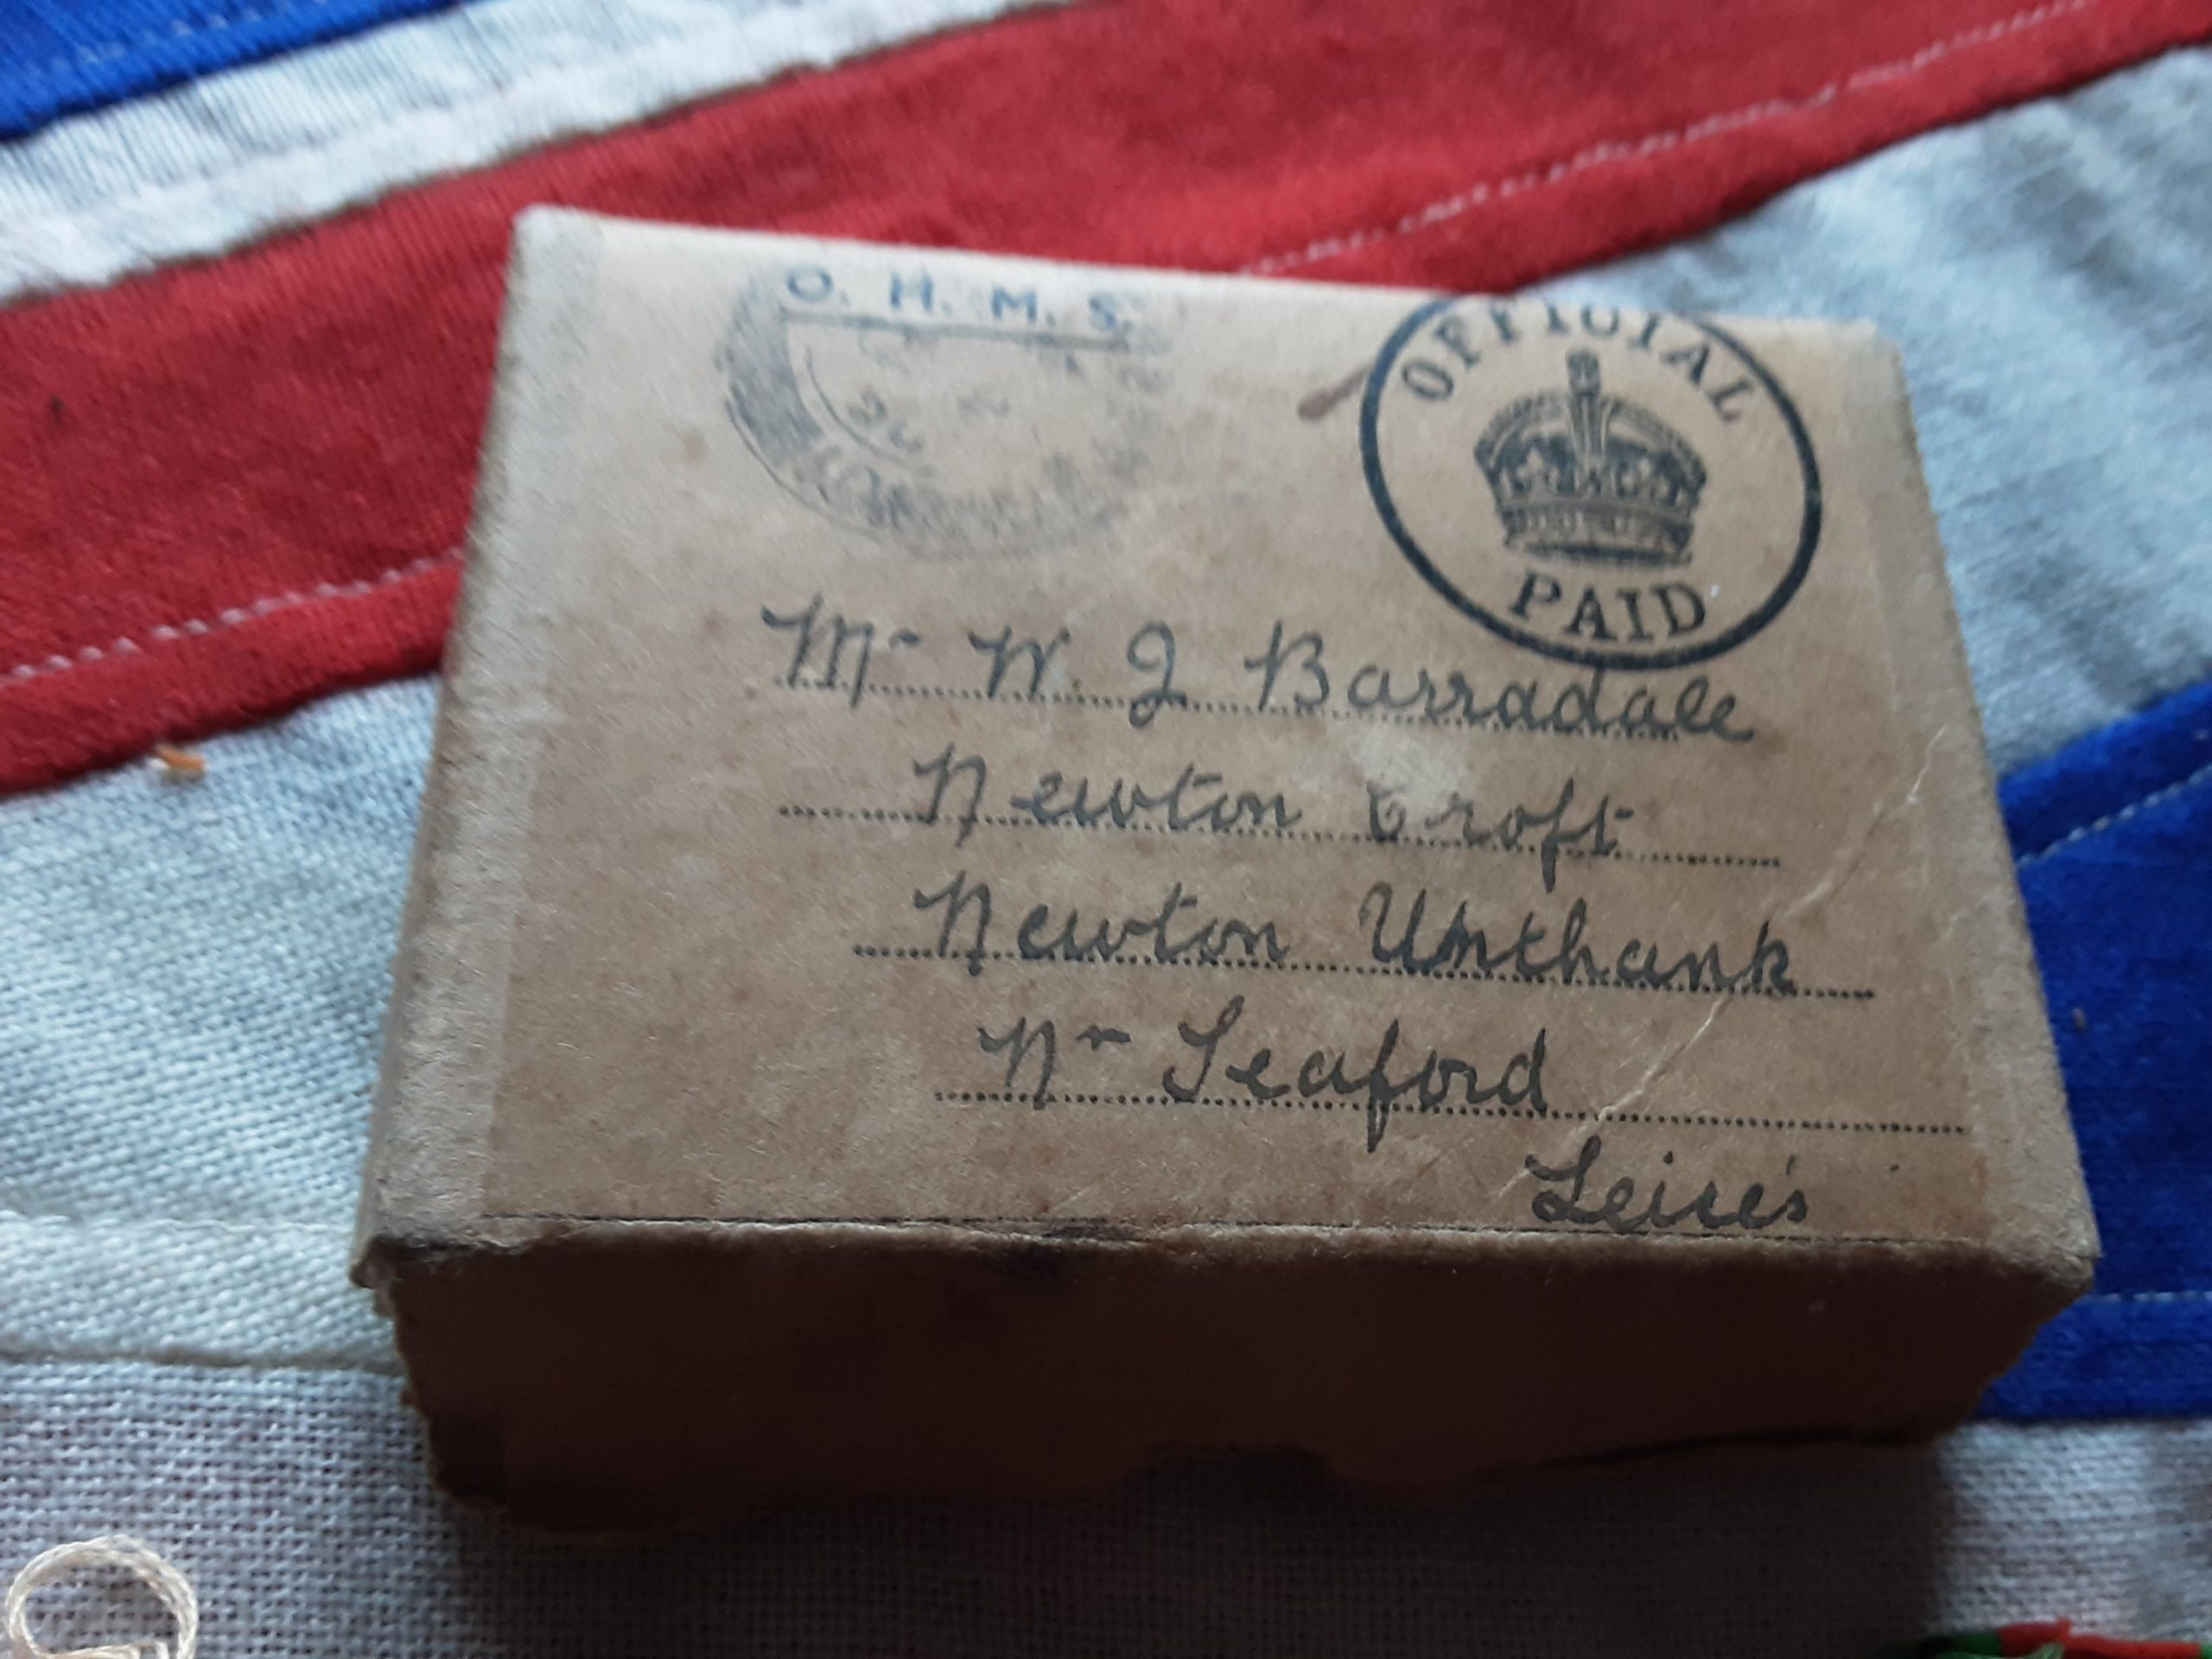 O. H. M. S.
OFFICIAL
PAID
Mr W. J Barradale
Newton Croft
Newton Unthank
Nr Seaford
Leics